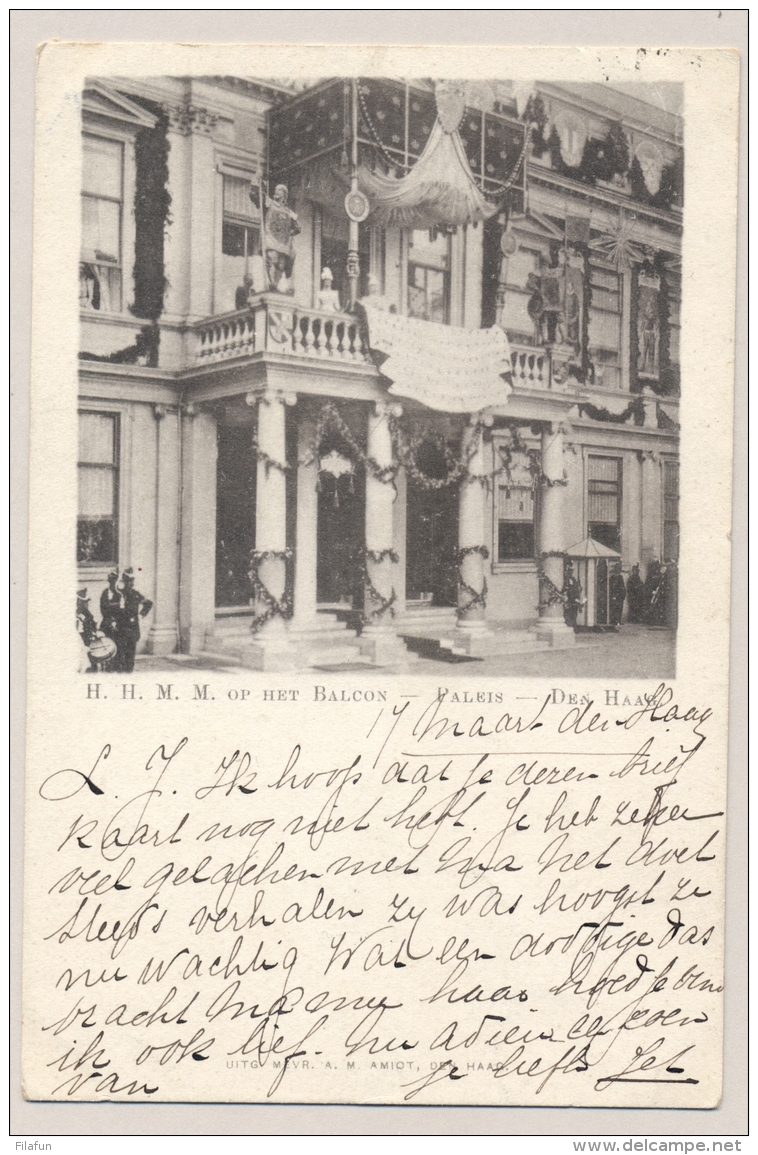 H. H. M. M. OP HET BALCON — PALEIS — DEN HAAG.
17 Maart den Haag
L. J. Ik hoop dat je dezen brief
kaart nog niet hebt. Je heb zeker
veel gelachen met Ma Net doet
steeds verhalen zy was hoogst ze
nuwachtig Wat een doddige das
bracht Ma mee haar hoedje
ik ook lief. Nu adieu een zoen
van je liefh Jet
UITG. MEVR. A. M. AMIOT, DEN HAAG.
Filafun
www.delcampe.net